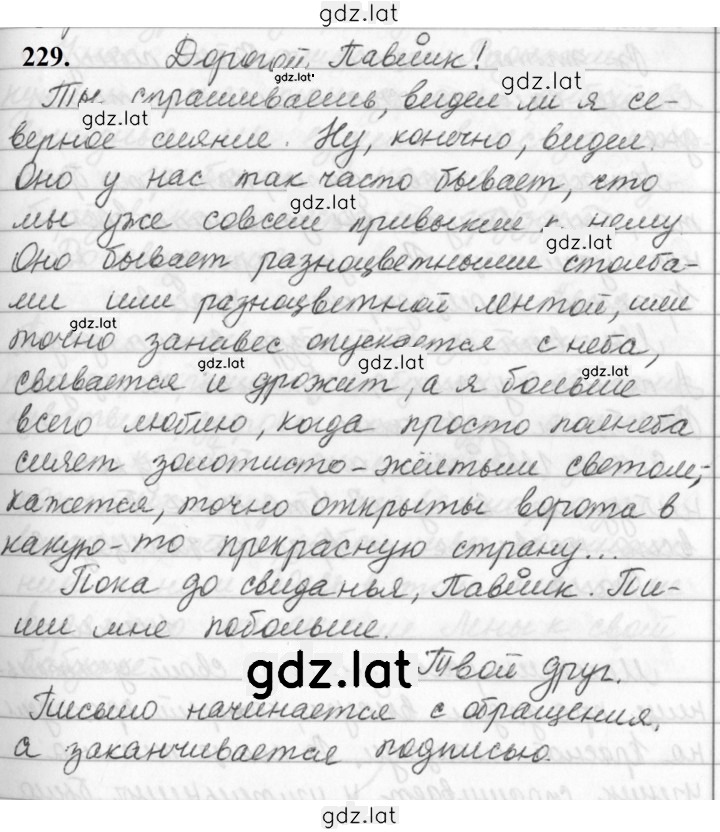 gdz.lat
229. Дорогой Павлик!
gdz.lat
gdz.lat
Ты спрашиваешь, видел ли я се-
gdz.lat
верное сияние. Ну, конечно, видел.
Оно у нас так часто бывает, что
gdz.lat
мы уже совсем привыкли к нему
gdz.lat
Оно бывает разноцветными столба-
ми или разноцветной лентой, или
gdz.lat
точно занавес опускается с неба,
gdz.lat gdz.lat gdz.lat
свивается и дрожит, а я больше
всего люблю, когда просто полнеба
сияет золотисто-жёлтым светом,
кажется, точно открыты ворота в
какую-то прекрасную страну...
Пока до свиданья, Павлик. Пи-
ши мне побольше.
gdz.lat
Твой друг.
Письмо начинается с обращения,
а заканчивается подписью.
gdz.lat